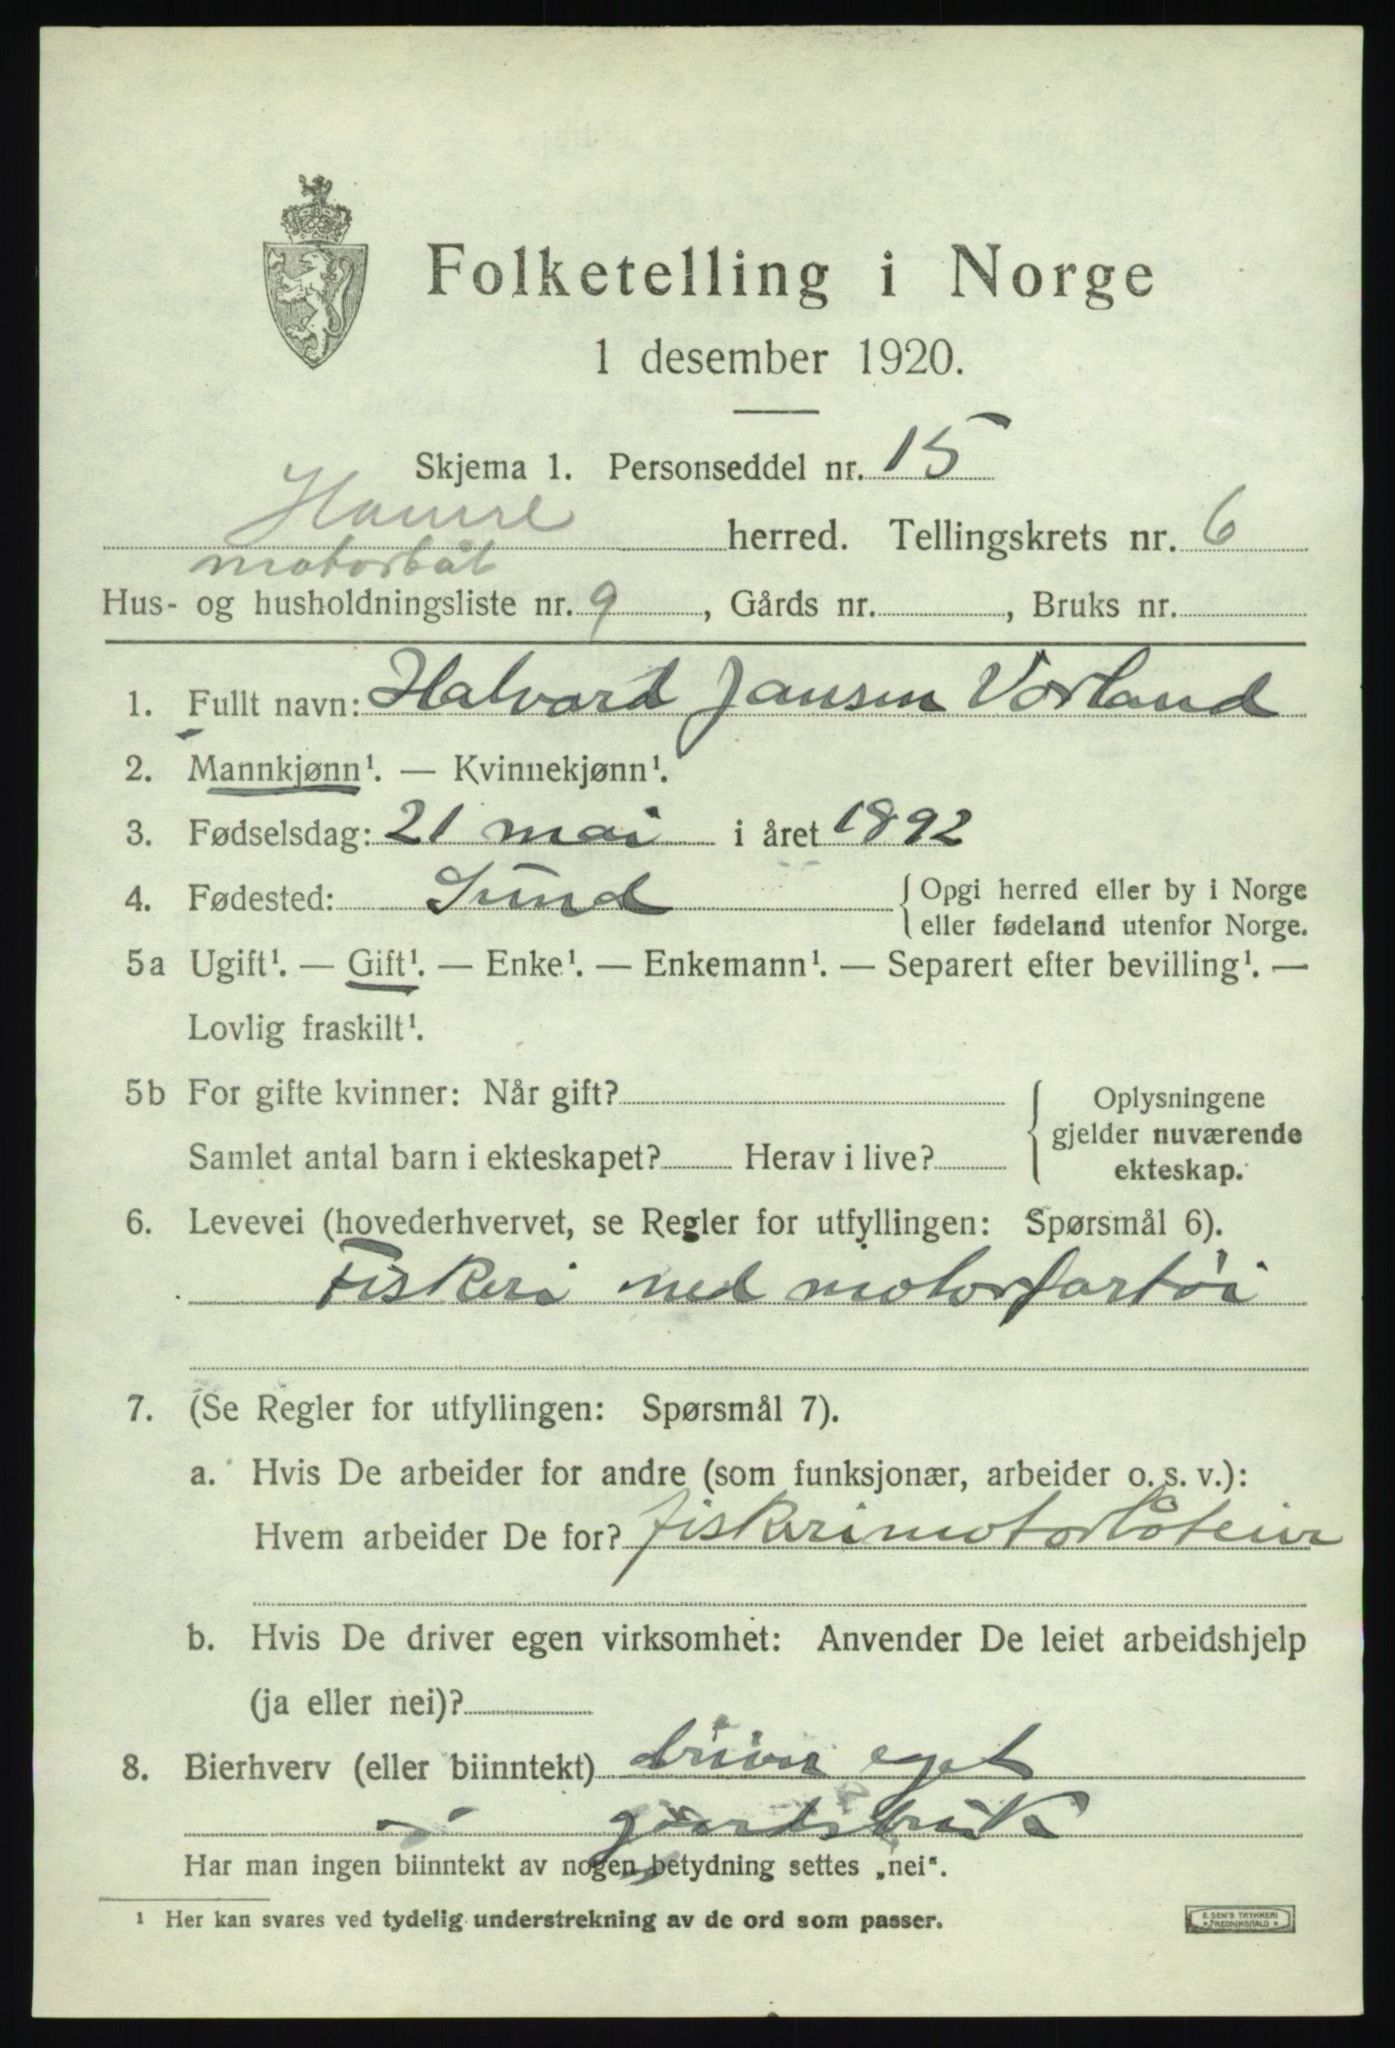 Folketelling i Norge
1 desember 1920.
Skjema 1. Personseddel nr. 15
Hamre herred. Tellingskrets nr. 6
motorbåt
Hus- og husholdningsliste nr. 9, Gårds nr. , Bruks nr.
1. Fullt navn: Halvard Jansen Vorland
2. Mannkjønn¹. — Kvinnekjønn¹.
3. Fødselsdag: 21 mai i året 1892
4. Fødested: Sund { Opgi herred eller by i Norge
eller fødeland utenfor Norge.
5a Ugift¹. — Gift¹. — Enke¹. — Enkemann¹. — Separert efter bevilling¹. —
Lovlig fraskilt¹.
5b For gifte kvinner: Når gift? { Oplysningene
gjelder nuværende
Samlet antal barn i ekteskapet? Herav i live? ekteskap.
6. Levevei (hovederhvervet, se Regler for utfyllingen: Spørsmål 6).
Fiskeri med motorfartöi
7. (Se Regler for utfyllingen: Spørsmål 7).
a. Hvis De arbeider for andre (som funksjonær, arbeider o. s. v.):
Hvem arbeider De for? fiskerimotorbåteier
b. Hvis De driver egen virksomhet: Anvender De leiet arbeidshjelp
(ja eller nei)?
8. Bierhverv (eller biinntekt) driver eget
gaardsbruk
Har man ingen biinntekt av nogen betydning settes „nei“.
¹ Her kan svares ved tydelig understrekning av de ord som passer.